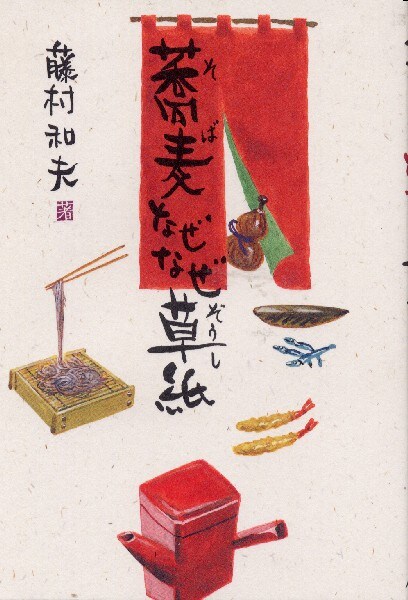 蕎麦なぜなぜ草紙
そば
ぞうし
藤村和夫
著